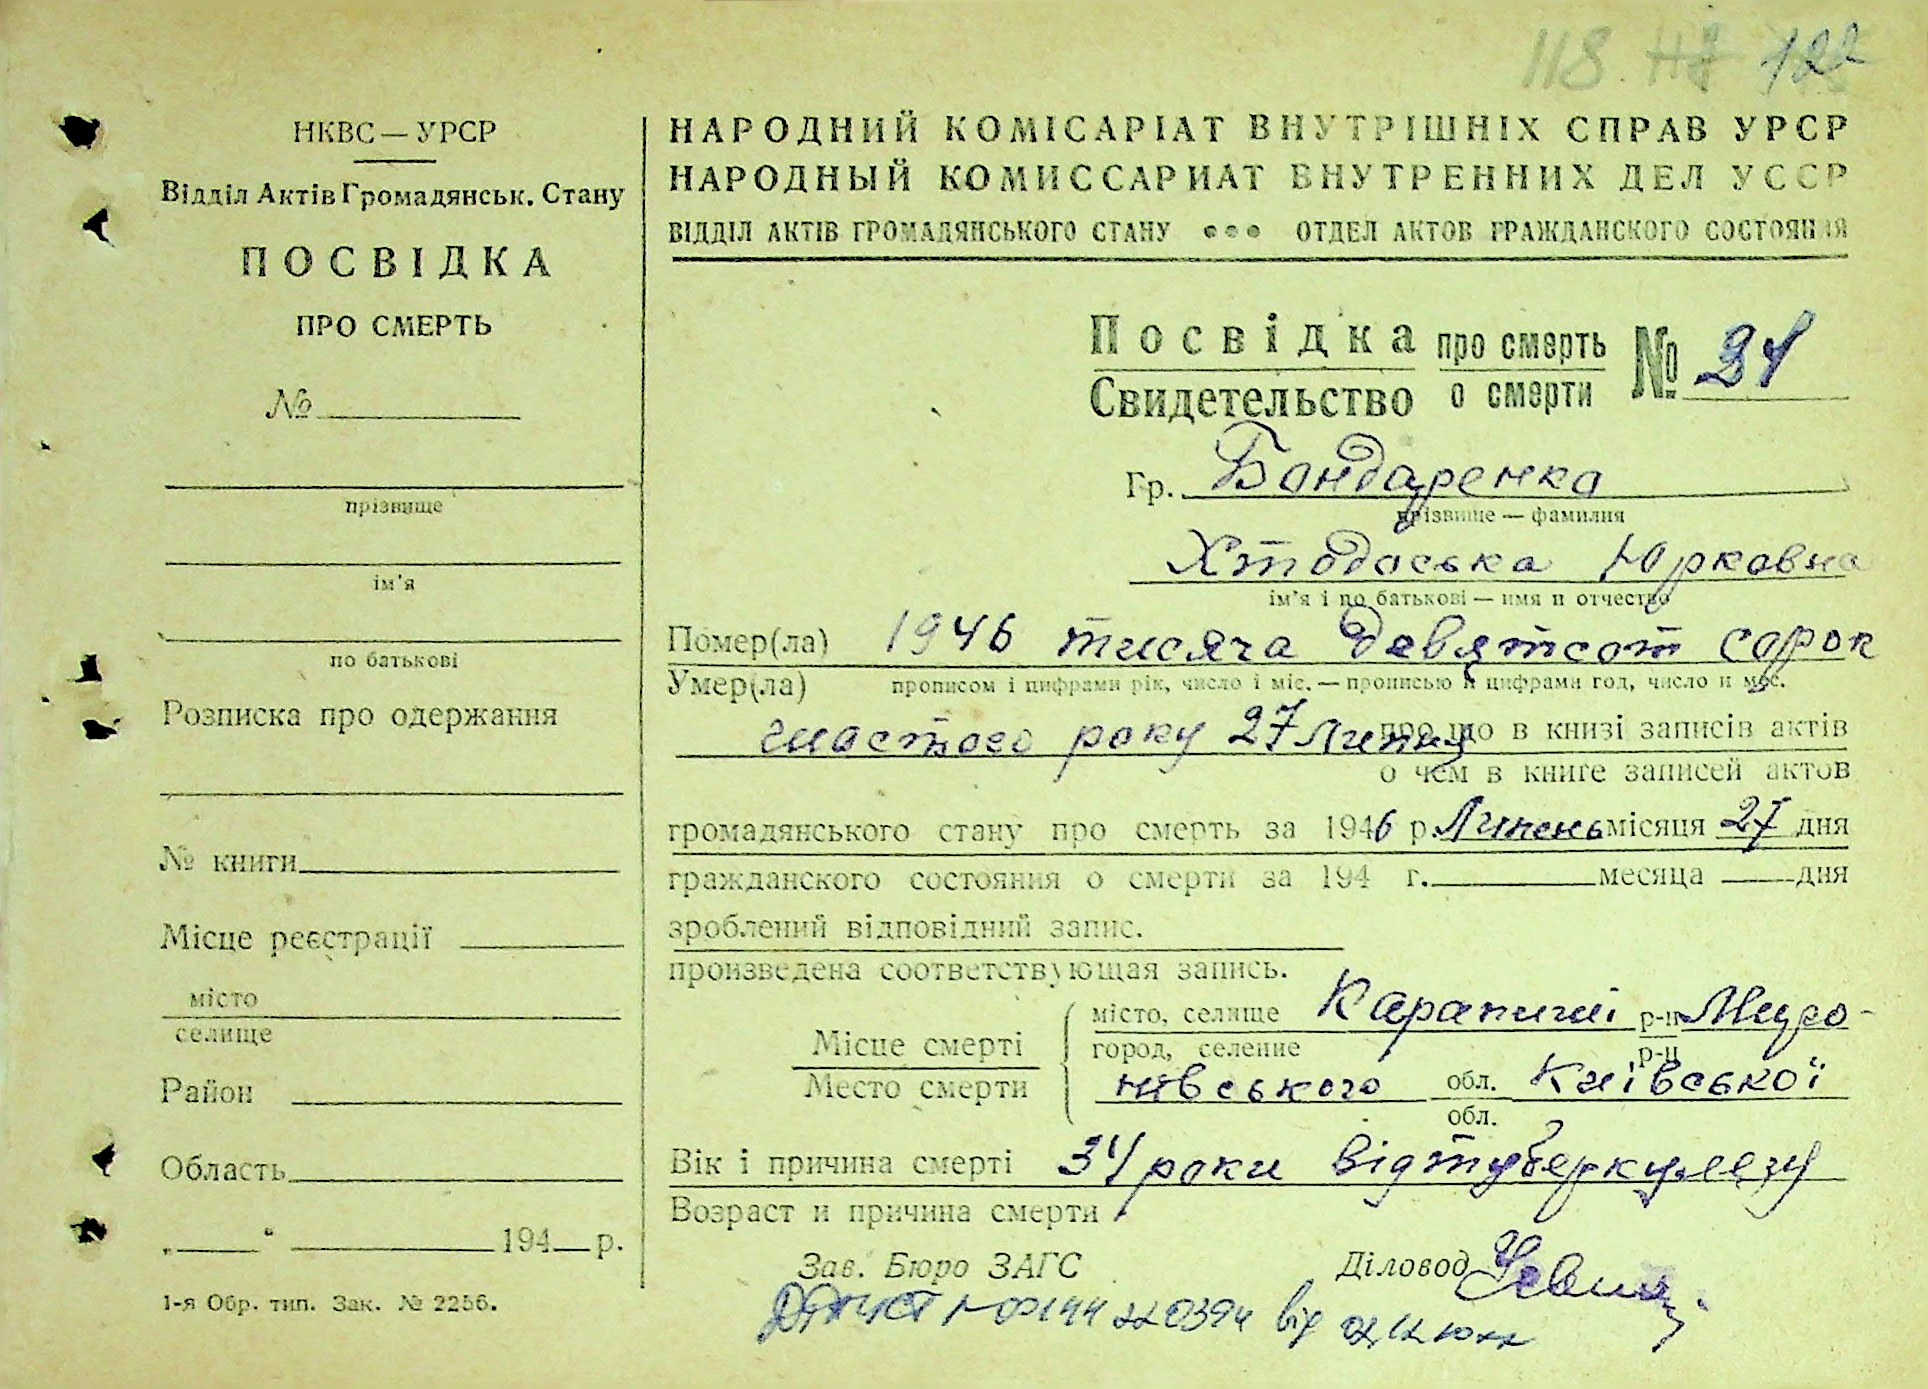 118 117 122
НКВС — УРСР
Відділ Актів Громадянськ. Стану
ПОСВІДКА
ПРО СМЕРТЬ
№
прізвище
ім'я
по батькові
Розписка про одержання
№ книги
Місце реєстрації
місто
селище
Район
Область
„ “ 194 р.
1-я Обр. тип. Зак. № 2256.
НАРОДНИЙ КОМІСАРІАТ ВНУТРІШНІХ СПРАВ УРСР
НАРОДНЫЙ КОМИССАРИАТ ВНУТРЕННИХ ДЕЛ УССР
ВІДДІЛ АКТІВ ГРОМАДЯНСЬКОГО СТАНУ ОТДЕЛ АКТОВ ГРАЖДАНСКОГО СОСТОЯНИЯ
Посвідка про смерть №
Свидетельство о смерти
Гр. Бондаренко
прізвище — фамилия
Юрковна
ім'я і по батькові — имя и отчество
Помер(ла) 1946 тисяча девятсот сорок
Умер(ла) прописом і цифрами рік, число і міс. — прописью и цифрами год, число и мес.
шостого року 27 Липня про що в книзі записів актів
о чем в книге записей актов
громадянського стану про смерть за 1946 р. Липень місяця 27 дня
гражданского состояния о смерти за 194 г. месяца дня
зроблений відповідний запис.
произведена соответствующая запись.
Місце смерті місто, селище Карапиші р-н Миро-
Место смерти город, селение р-н
нівського обл. Київської
обл.
Вік і причина смерті 34 роки від туберкулезу
Возраст и причина смерти
Зав. Бюро ЗАГС Діловод
від